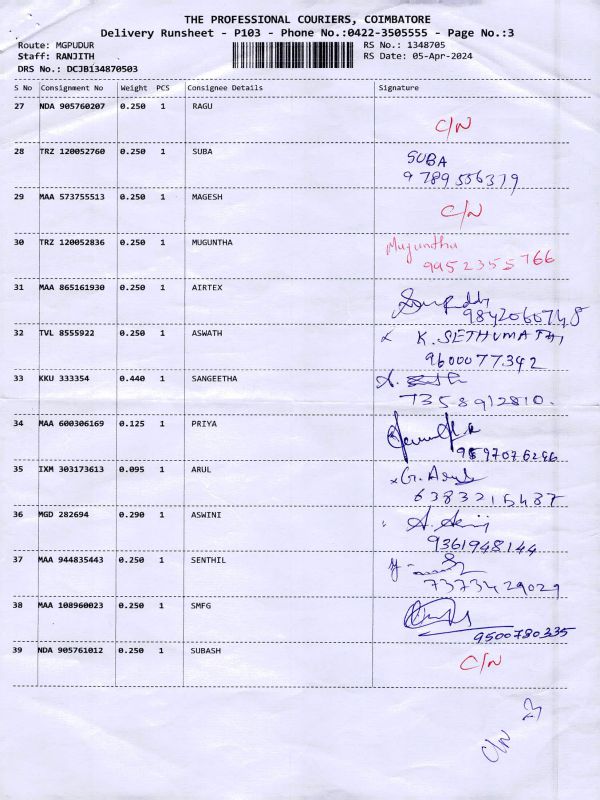 THE PROFESSIONAL COURIERS, COIMBATORE
Delivery Runsheet - P103 - Phone No.:0422-3505555 - Page No.:3
Route: MGPUDUR RS No.: 1348705
Staff: RANJITH RS Date: 05-Apr-2024
DRS No.: DCJB134870503
S No Consignment No Weight PCS Consignee Details Signature
27 NDA 905760207 0.250 1 RAGU
C/N
28 TRZ 120052760 0.250 1 SUBA SUBA
9789556379
29 MAA 573755513 0.250 1 MAGESH
C/N
30 TRZ 120052836 0.250 1 MUGUNTHA Muguntha
9952355766
31 MAA 865161930 0.250 1 AIRTEX
9842060748
32 TVL 8555922 0.250 1 ASWATH K. SETHUMATHI
9600077342
33 KKU 333354 0.440 1 SANGEETHA
7358912810.
34 MAA 600306169 0.125 1 PRIYA
35 IXM 303173613 0.095 1 ARUL G. Arul
6383215487
36 MGD 282694 0.290 1 ASWINI
9361948144
37 MAA 944835443 0.250 1 SENTHIL
7373429029
38 MAA 108960023 0.250 1 SMFG
9500780335
39 NDA 905761012 0.250 1 SUBASH
C/N
C/N